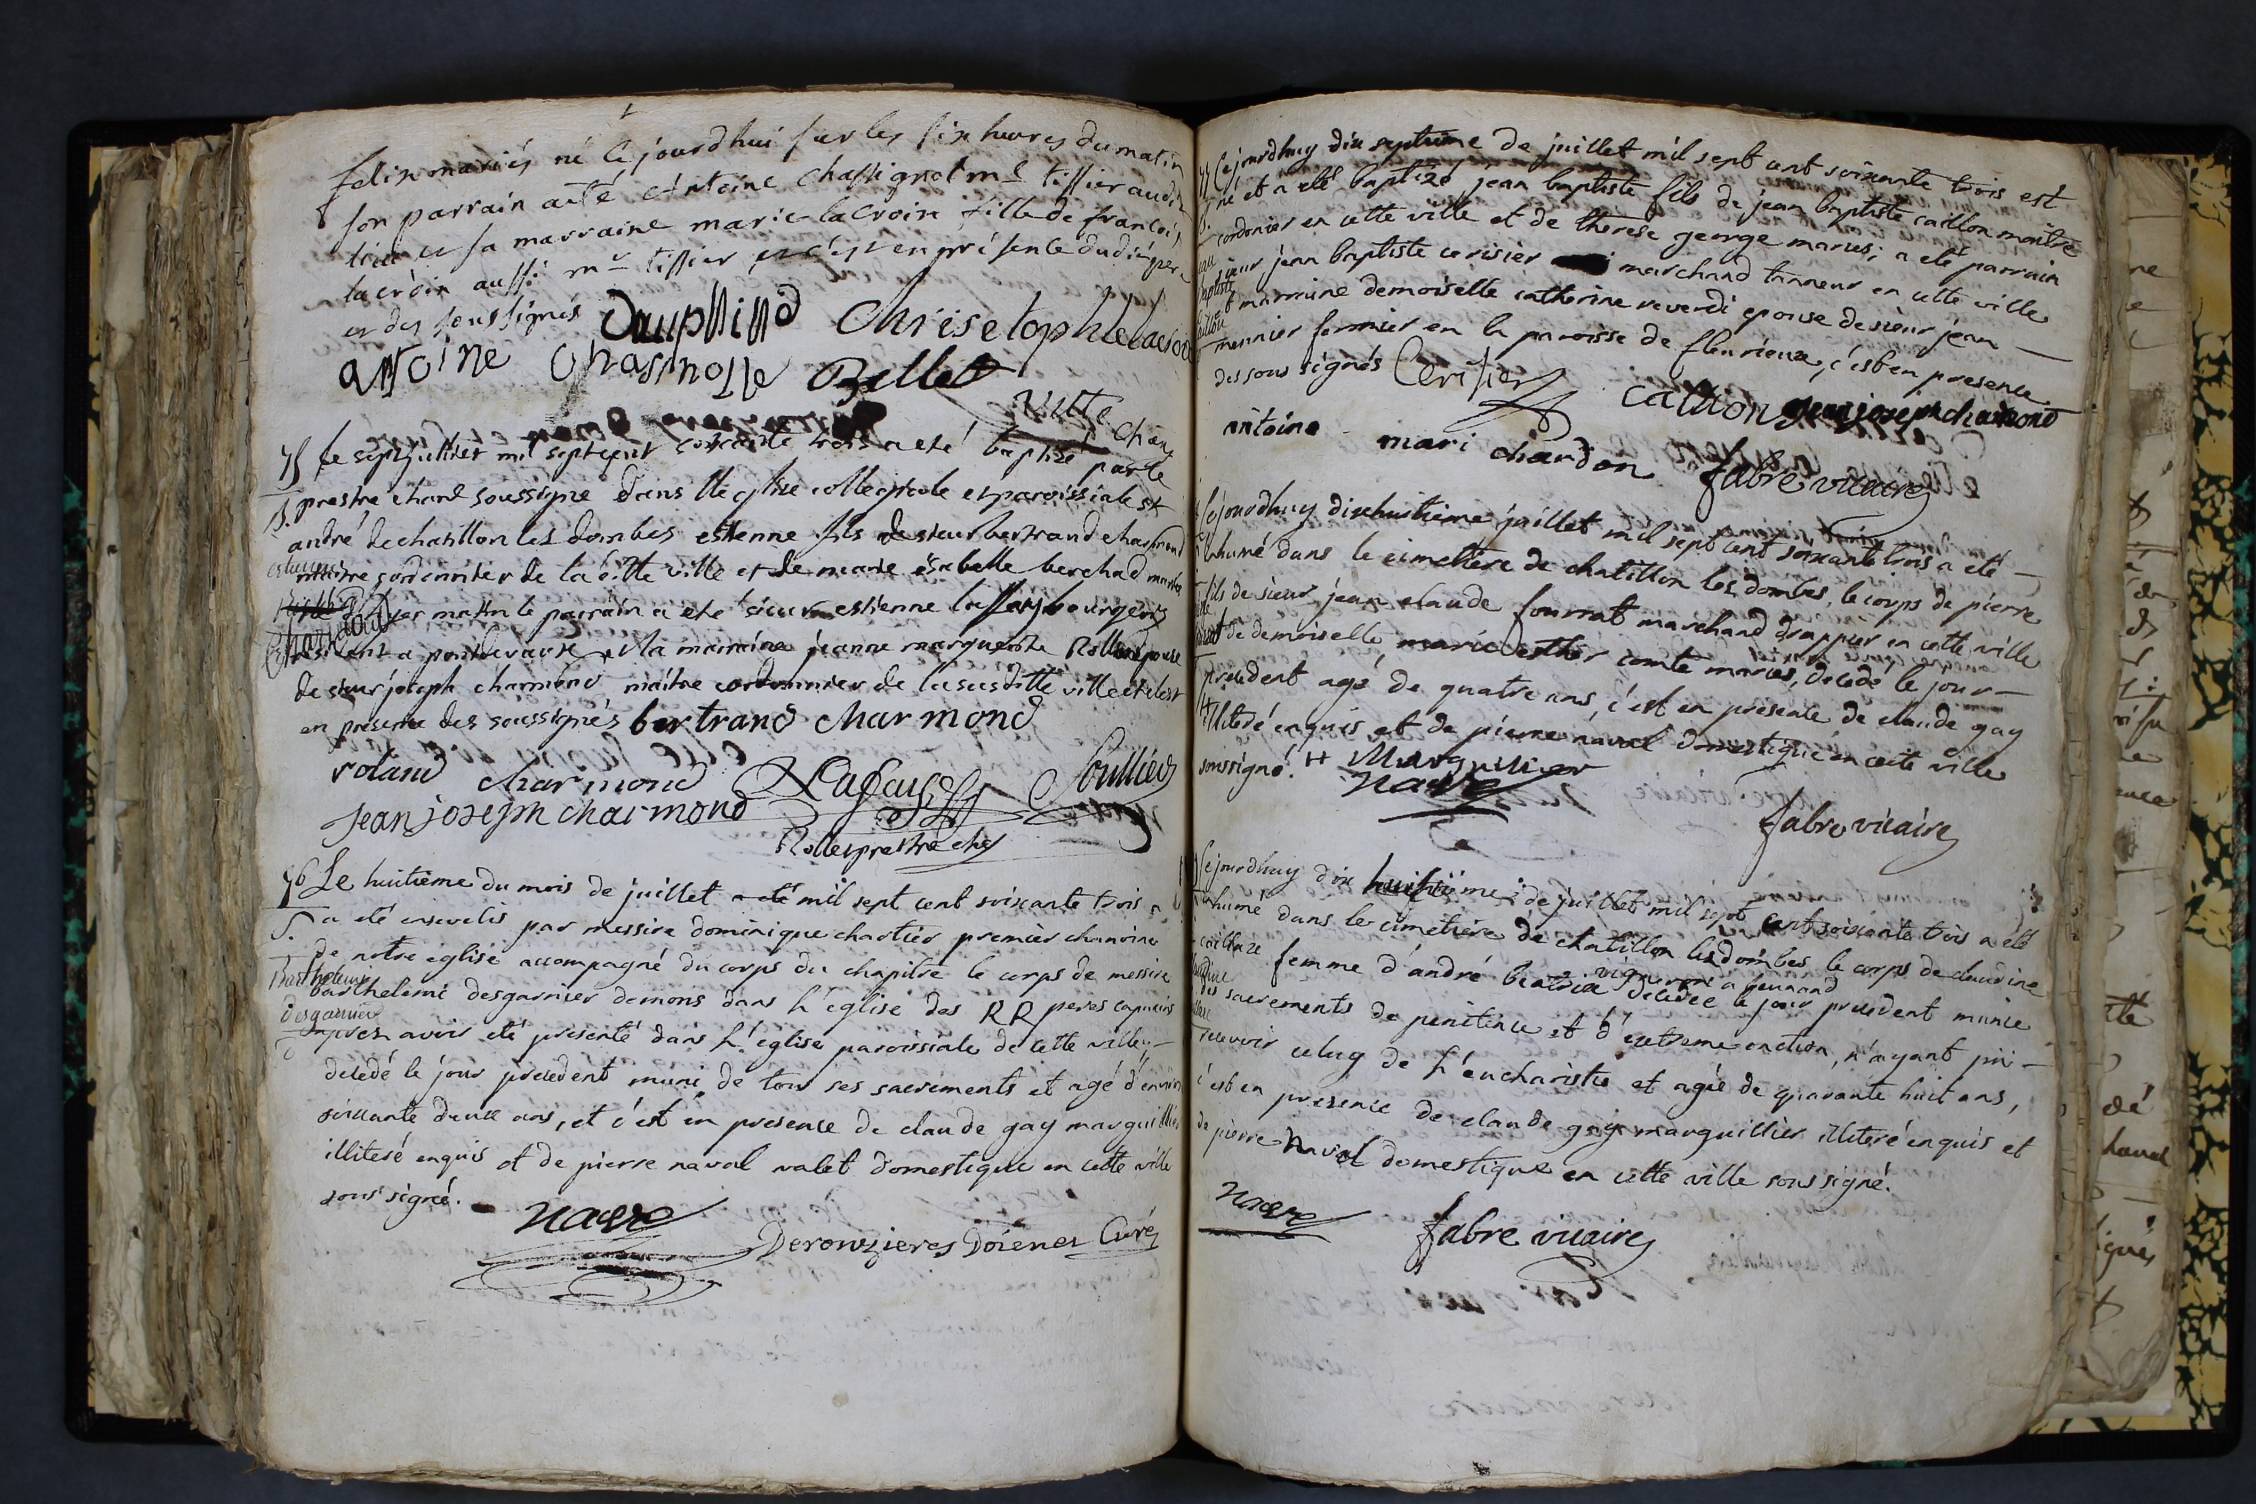 felix mariés né le jourdhui sur les six heures du matin
son parrain a été Antoine Chassignol mᵉ tissier audi
lieu et sa marraine marie lacroix fille de francois
lacroix aussi mʳ tissier et c'est en présence dudi père
et des soussignés Dauphind Chrisetophle lacroi
antoine Billet
75 Le sept juillet mil sept cent soixante trois a eté baptisé par le
B. prestre chanᵉ soussigné dans l'église collegiale et paroissiale st
andré de chatillon les dombes estienne fils de sieur bertrand charmond
estienne
maitre cordonnier de la ditte ville et de marie isabelle berchad mariés
charmond
né hier matin le parrain a eté sieur estienne bourgeois
résident a pontdevaux et la maraine jeanne marguerite Rollet epouse
de sieur joseph charmond maitre cordonnier de la susditte ville et c'est
en présence des soussignés bertrand charmond
roland charmond
jean joseph charmond
Rollet prestre
76 Le huitième du mois de juillet a eté mil sept cent soixante trois a
S. a eté enseveli par messire dominique chartier premier chanoine
de notre église accompagné du corps du chapitre le corps de messire
Barthelemi
barthelemi desgarnier demons dans l'église des RR peres capucins
desgarnier
apres avoir eté présenté dans l'église paroissiale de cette ville,
décédé le jour précédent muni de tous ses sacrements et agé d'environ
soixante deux ans, et c'est en presence de claude gay marguillier
illiteré enquis et de pierre naval valet domestique en cette ville
sous signé.
nave
Derouzieres Doien et Curé
77 Cejourdhuy dix septieme de juillet mil sept cent soixante trois est
né et a eté baptizé jean baptiste fils de jean baptiste caillon maitre
B. cordonier en cette ville et de therese george mariés; a eté parrain
jean
sieur jean baptiste cerisier marchand tanneur en cette ville
baptiste
et marraine demoiselle catherine reverdi epouse de sieur jean
caillon
meunier fermier en la paroisse de fleurieux, c'est en presence
des sous signés Cerisier caillon jean joseph charmond
antoine mari chardon fabre vicaire
Cejourdhuy dixhuitieme juillet mil sept cent soixante trois a eté
inhumé dans le cimetière de chatillon les dombes, le corps de pierre
fils de sieur jean claude fourrat marchand drappier en cette ville
et de demoiselle marie esther comte mariés, décédé le jour
précédent agé de quatre ans, c'est en présence de claude gay
++ illiteré enquis et de pierre naval domestique en cette ville
soussigné. ++ Marguillier
nave
fabre vicaire
Cejourdhuy dix huitième de juillet mil sept cent soixante trois a eté
inhumé dans le cimetière de chatillon les dombes le corps de claudine
vigneron a
femme d'andré decedée le jour précédent munie
des sacrements de penitence et d'extreme onction, n'ayant pu
recevoir celuy de l'eucharistie et agée de quarante huit ans,
c'est en présence de claude gay marguillier illiteré enquis et
de pierre naval domestique en cette ville sous signé.
nave
fabre vicaire